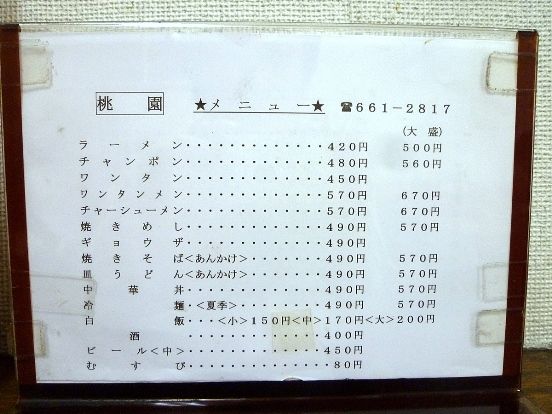 桃園 ★メニュー★ ☎661-2817
(大盛)
ラーメン・・・・・・・・・・・・・420円 500円
チャンポン・・・・・・・・・・・・・480円 560円
ワンタン・・・・・・・・・・・・・450円
ワンタンメン・・・・・・・・・・・・・570円 670円
チャーシューメン・・・・・・・・・・・・・570円 670円
焼きめし・・・・・・・・・・・・・490円 570円
ギョウザ・・・・・・・・・・・・・490円
焼きそば<あんかけ>・・・・・・・・490円 570円
皿うどん<あんかけ>・・・・・・・・490円 570円
中華丼・・・・・・・・・・・・・490円 570円
冷麺・<夏季>・・・・・・・・・490円 570円
白飯・・・<小>150円<中>170円<大>200円
酒・・・・・・・・・・・・・400円
ビール<中>・・・・・・・・・・・・・450円
むすび・・・・・・・・・・・・・80円